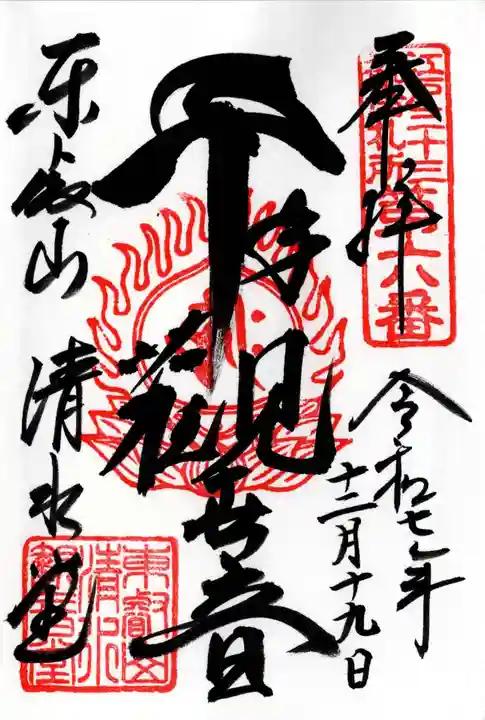 奉拝
江戸三十三箇所第六番
令和七年
十二月十九日
千手観世音
東叡山 清水堂
東叡山
清水
観音堂